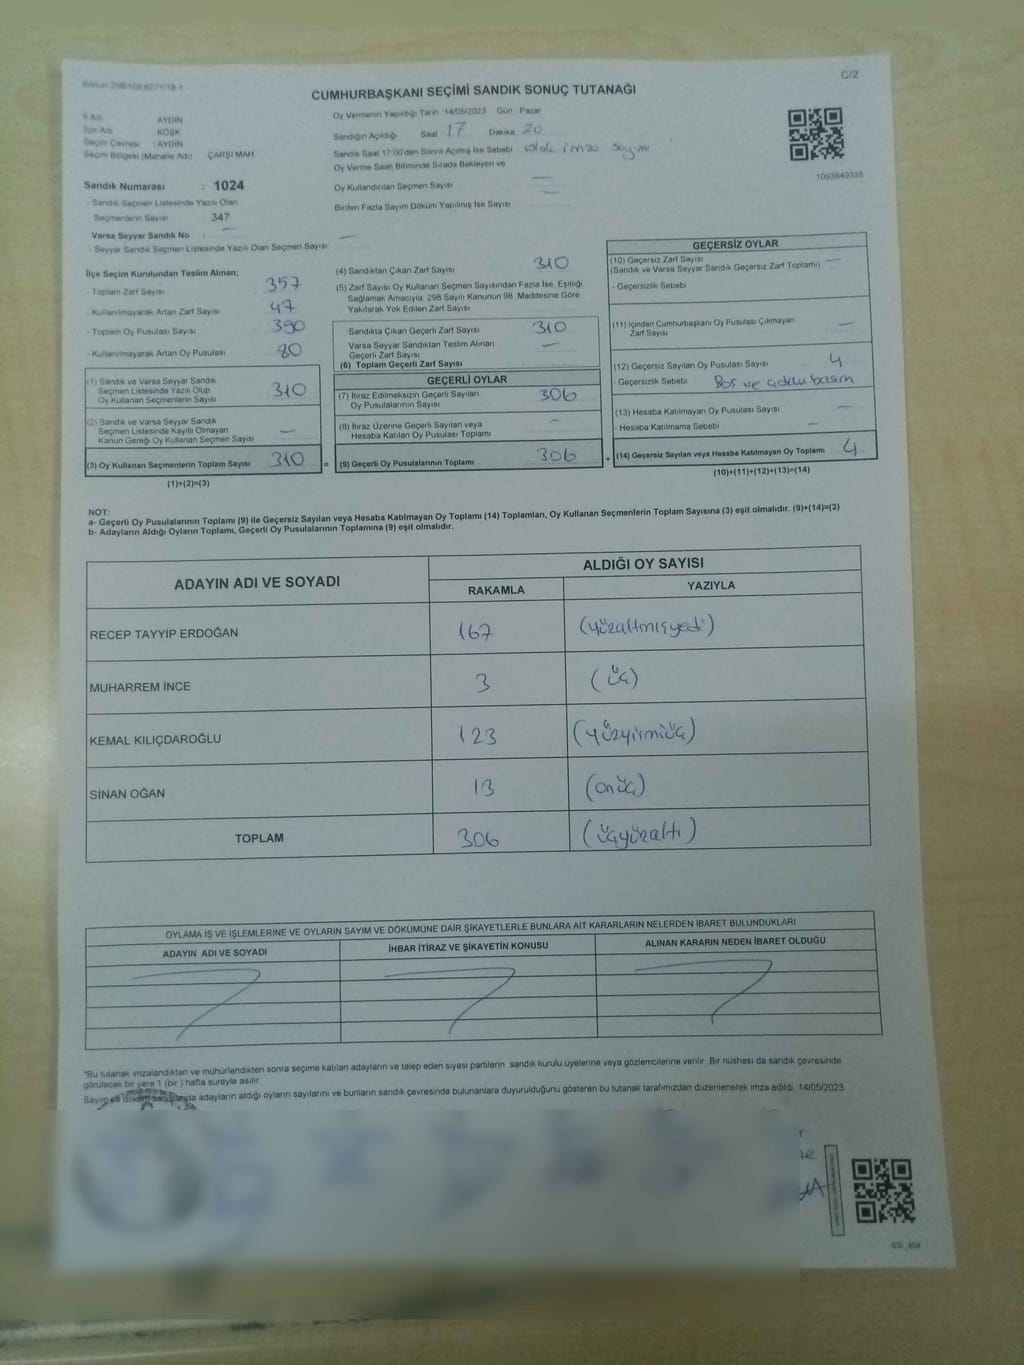 C/2
CUMHURBAŞKANI SEÇİMİ SANDIK SONUÇ TUTANAĞI
İl Adı : AYDIN
İlçe Adı : KÖŞK
Seçim Çevresi : AYDIN
Seçim Bölgesi (Mahalle Adı) ÇARŞI MAH.
Sandık Numarası : 1024
- Sandık Seçmen Listesinde Yazılı Olan
Seçmenlerin Sayısı : 347
Varsa Seyyar Sandık No —
- Seyyar Sandık Seçmen Listesinde Yazılı Olan Seçmen Sayısı : —
Oy Vermenin Yapıldığı Tarih 14/05/2023 Gün Pazar
Sandığın Açıldığı Saat 17 Dakika 20
Sandık Saat 17:00'den Sonra Açılmış İse Sebebi ıslak imza sayımı
Oy Verme Saati Bitiminde Sırada Bekleyen ve
Oy Kullandırılan Seçmen Sayısı —
Birden Fazla Sayım Döküm Yapılmış İse Sayısı —
1093849336
İlçe Seçim Kurulundan Teslim Alınan;
- Toplam Zarf Sayısı 357
- Kullanılmayarak Artan Zarf Sayısı 47
- Toplam Oy Pusulası Sayısı 390
- Kullanılmayarak Artan Oy Pusulası 80
(1) Sandık ve Varsa Seyyar Sandık
Seçmen Listesinde Yazılı Olup
Oy Kullanan Seçmenlerin Sayısı 310
(2) Sandık ve Varsa Seyyar Sandık
Seçmen Listesinde Kayıtlı Olmayan
Kanun Gereği Oy Kullanan Seçmen Sayısı —
(3) Oy Kullanan Seçmenlerin Toplam Sayısı 310
(1)+(2)=(3)
(4) Sandıktan Çıkan Zarf Sayısı 310
(5) Zarf Sayısı Oy Kullanan Seçmen Sayısından Fazla İse, Eşitliği
Sağlamak Amacıyla, 298 Sayılı Kanunun 98. Maddesine Göre
Yakılarak Yok Edilen Zarf Sayısı
Sandıkta Çıkan Geçerli Zarf Sayısı 310
Varsa Seyyar Sandıktan Teslim Alınan
Geçerli Zarf Sayısı —
(6) Toplam Geçerli Zarf Sayısı
GEÇERLİ OYLAR
(7) İtiraz Edilmeksizin Geçerli Sayılan
Oy Pusulalarının Sayısı 306
(8) İtiraz Üzerine Geçerli Sayılan veya
Hesaba Katılan Oy Pusulası Toplamı —
= (9) Geçerli Oy Pusulalarının Toplamı 306
GEÇERSİZ OYLAR
(10) Geçersiz Zarf Sayısı —
(Sandık ve Varsa Seyyar Sandık Geçersiz Zarf Toplamı)
- Geçersizlik Sebebi
(11) İçinden Cumhurbaşkanı Oy Pusulası Çıkmayan
Zarf Sayısı —
(12) Geçersiz Sayılan Oy Pusulası Sayısı 4
- Geçersizlik Sebebi Boş ve çoklu basım
(13) Hesaba Katılmayan Oy Pusulası Sayısı —
- Hesaba Katılmama Sebebi —
+ (14) Geçersiz Sayılan veya Hesaba Katılmayan Oy Toplamı 4
(10)+(11)+(12)+(13)=(14)
NOT:
a- Geçerli Oy Pusulalarının Toplamı (9) ile Geçersiz Sayılan veya Hesaba Katılmayan Oy Toplamı (14) Toplamları, Oy Kullanan Seçmenlerin Toplam Sayısına (3) eşit olmalıdır. (9)+(14)=(3)
b- Adayların Aldığı Oyların Toplamı, Geçerli Oy Pusulalarının Toplamına (9) eşit olmalıdır.
ADAYIN ADI VE SOYADI ALDIĞI OY SAYISI
RAKAMLA YAZIYLA
RECEP TAYYİP ERDOĞAN 167 (yüzaltmışyedi)
MUHARREM İNCE 3 (üç)
KEMAL KILIÇDAROĞLU 123 (yüzyirmiüç)
SİNAN OĞAN 13 (onüç)
TOPLAM 306 (üçyüzaltı)
OYLAMA İŞ VE İŞLEMLERİNE VE OYLARIN SAYIM VE DÖKÜMÜNE DAİR ŞİKAYETLERLE BUNLARA AİT KARARLARIN NELERDEN İBARET BULUNDUKLARI
ADAYIN ADI VE SOYADI İHBAR İTİRAZ VE ŞİKAYETİN KONUSU ALINAN KARARIN NEDEN İBARET OLDUĞU
*Bu tutanak imzalandıktan ve mühürlendikten sonra seçime katılan adayların ve talep eden siyasi partilerin sandık kurulu üyelerine veya gözlemcilerine verilir. Bir nüshası da sandık çevresinde
görülecek bir yere 1 (bir) hafta süreyle asılır.
Sayım ve döküm sonunda adayların aldığı oyların sayılarını ve bunların sandık çevresinde bulunanlara duyurulduğunu gösteren bu tutanak tarafımızdan düzenlenerek imza edildi. 14/05/2023